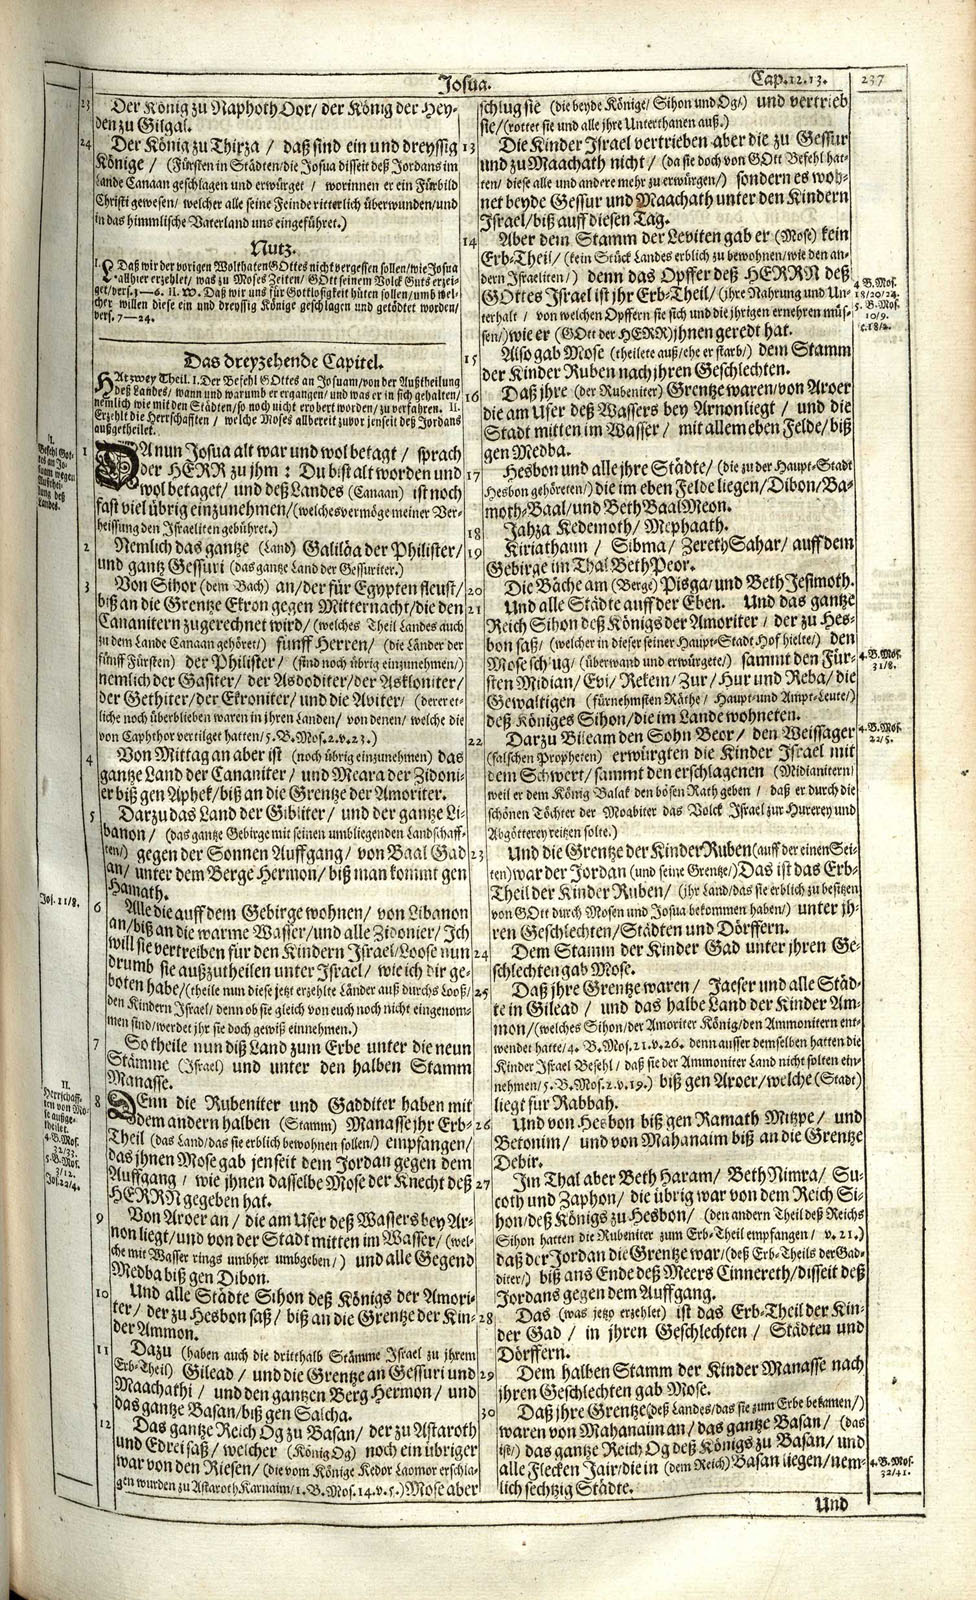 Josua.
Cap. 12. 13.
237
23 Der König zu Naphoth Dor/ der König der Hey-
den zu Gilgal.
24 Der König zu Thirza / daß sind ein und dreyssig
Könige / (Fürsten in Städten/die Josua disseit deß Jordans im
Lande Canaan geschlagen und erwürget / worinnen er ein Fürbild
Christi gewesen/ welcher alle seine Feinde ritterlich überwunden/und
in das himmlische Vaterland uns eingeführet.)
Nutz.
I. Daß wir der vorigen Wolthaten GOttes nicht vergessen sollen/wie Josua
allhier erzehlet/ was zu Moses Zeiten/ GOtt seinem Volck Guts erzei-
get/vers.1--6. II. W. Daß wir uns für Gottlosigkeit hüten sollen/umb wel-
cher willen diese ein und dreyssig Könige geschlagen und getödtet worden/
vers. 7--24.
Das dreyzehende Capitel.
HAt zwey Theil. I. Der Befehl GOttes an Josuam/von der Außtheilung
deß Landes/ wann und warumb er ergangen/ und was er in sich gehalten/
nemlich wie mit den Städten/so noch nicht erobert worden/ zu verfahren. II.
Erzehlt die Herrschafften / welche Moses allbereit zuvor jenseit deß Jordans
außgetheilet.
I.
Befehl Got-
tes an Jo-
suam wegen
Außthei-
lung deß
Landes.
1 DA nun Josua alt war und wol betagt/ sprach
der HERR zu jhm: Du bist alt worden und
wol betaget/ und deß Landes (Canaan) ist noch
fast viel übrig einzunehmen/(welches vermöge meiner Ver-
heissung den Israeliten gebühret.)
2 Nemlich das gantze (Land) Galiläa der Philister/
und gantz Gessuri (das gantze Land der Gessuriter.)
3 Von Sihor (dem Bach) an/der für Egypten fleust/
biß an die Grentze Ekron gegen Mitternacht/die den
Cananitern zugerechnet wird/ (welches Theil Landes auch
zu dem Lande Canaan gehöret/) fünff Herren/ (die Länder der
fünff Fürsten) der Philister/ (sind noch übrig einzunehmen/)
nemlich der Gasiter/ der Asdoditer/der Askloniter/
der Gethiter/der Ekroniter/ und die Aviter/ (derer et-
liche noch überblieben waren in jhren Landen/ von denen/ welche die
von Caphthor vertilget hatten/5. B. Mos. 2. v. 23.)
4 Von Mittag an aber ist (noch übrig einzunehmen) das
gantze Land der Cananiter / und Meara der Zidoni-
er biß gen Aphek/biß an die Grentze der Amoriter.
5 Darzu das Land der Gibliter/ und der gantze Li-
banon/ (das gantze Gebirge mit seinen umbliegenden Landschaff-
ten/) gegen der Sonnen Auffgang/ von Baal Gad
an/ unter dem Berge Hermon/ biß man kommt gen
Hamath.
Jos. 11/8.
6 Alle die auff dem Gebirge wohnen/ von Libanon
an/biß an die warme Wasser/und alle Zidonier/ Ich
will sie vertreiben für den Kindern Israel/Loose nun
drumb sie außzutheilen unter Israel/ wie ich dir ge-
boten habe/(theile nun diese jetzt erzehlte Länder auß durchs Looß/
den Kindern Israel/ denn ob sie gleich von euch noch nicht eingenom-
men sind/werdet jhr sie doch gewiß einnehmen.)
7 So theile nun diß Land zum Erbe unter die neun
Stämme (Israel) und unter den halben Stamm
Manasse.
II.
Herrschaff-
ten von Mo-
se außge-
theilet.
4. B. Mos.
32/33.
5. B. Mos.
3/12.
Jos. 22/4.
8 DEnn die Rubeniter und Gadditer haben mit
dem andern halben (Stamm) Manasse jhr Erb-
Theil (das Land/das sie erblich bewohnen sollen/) empfangen/
das jhnen Mose gab jenseit dem Jordan gegen dem
Auffgang / wie jhnen dasselbe Mose der Knecht deß
HERRN gegeben hat.
9 Von Aroer an / die am Ufer deß Wassers bey Ar-
non liegt/und von der Stadt mitten im Wasser/ (wel-
che mit Wasser rings umbher umgeben/) und alle Gegend
Medba biß gen Dibon.
10 Und alle Städte Sihon deß Königs der Amori-
ter/ der zu Hesbon saß/ biß an die Grentze der Kin-
der Ammon.
11 Dazu (haben auch die dritthalb Stämme Israel zu jhrem
Erb-Theil) Gilead / und die Grentze an Gessuri und
Maachathi / und den gantzen Berg Hermon/ und
das gantze Basan/biß gen Salcha.
12 Das gantze Reich Og zu Basan/ der zu Astaroth
und Edrei saß/ welcher (König Og) noch ein übriger
war von den Riesen/ (die vom Könige Kedor Laomor erschla-
gen wurden zu Astaroth Karnaim/1. B. Mos. 14. v. 5.) Mose aber
schlug sie (die beyde Könige/ Sihon und Og/) und vertrieb
sie/(rottet sie und alle jhre Unterthanen auß.)
13 Die Kinder Israel vertrieben aber die zu Gessur
und zu Maachath nicht/ (da sie doch von GOtt Befehl hat-
ten/ diese alle und andere mehr zu erwürgen/) sondern es woh-
net beyde Gessur und Maachath unter den Kindern
Israel/biß auff diesen Tag.
14 Aber dem Stamm der Leviten gab er (Mose) kein
Erb-Theil/ (kein Stück Landes erblich zu bewohnen/wie den an-
dern Israeliten/) denn das Opffer deß HERRN deß
GOttes Israel ist jhr Erb-Theil/ (jhre Nahrung und Un-
terhalt / von welchen Opffern sie sich und die jhrigen ernehren müs-
sen/) wie er (GOtt der HERR) jhnen geredt hat.
4 B. Mos.
18/20/24.
5. B. Mos.
10/9.
c. 18/2.
15 Also gab Mose (theilete auß/ehe er starb/) dem Stamm
der Kinder Ruben nach jhren Geschlechten.
16 Daß jhre (der Rubeniter) Grentze waren/von Aroer
die am Ufer deß Wassers bey Arnon liegt / und die
Stadt mitten im Wasser / mit allem eben Felde/biß
gen Medba.
17 Hesbon und alle jhre Städte/ (die zu der Haupt-Stadt
Hesbon gehöreten/) die im eben Felde liegen/Dibon/Ba-
moth-Baal/und Beth Baal Meon.
18 Jahza Kedemoth/ Mephaath.
19 Kiriathaim / Sibma/ Zereth Sahar/ auff dem
Gebirge im Thal Beth Peor.
20 Die Bäche am (Berge) Pisga/und Beth Jesimoth.
21 Und alle Städte auff der Eben. Und das gantze
Reich Sihon deß Königs der Amoriter/ der zu Hes-
bon saß/ (welcher in dieser seiner Haupt-Stadt Hof hielte/) den
Mose schlug/ (überwand und erwürgete/) sammt den Für-
sten Midian/ Evi/ Rekem/ Zur/ Hur und Reba/ die
Gewaltigen (fürnehmsten Räthe/ Haupt- und Ampt-Leute/)
deß Königes Sihon/die im Lande wohneten.
4. B. Mos.
31/8.
22 Darzu Bileam den Sohn Beor/ den Weissager
(falschen Propheten) erwürgten die Kinder Israel mit
dem Schwert/ sammt den erschlagenen (Midianitern/
weil er dem König Balak den bösen Rath geben / daß er durch die
schönen Töchter der Moabiter das Volck Israel zur Hurerey und
Abgötterey reitzen solte.)
4. B. Mos.
22/5.
23 Und die Grentze der Kinder Ruben (auff der einen Sei-
ten) war der Jordan (und seine Grentze/) Das ist das Erb-
Theil der Kinder Ruben/ (ihr Land/das sie erblich zu besitzen
von GOtt durch Mosen und Josua bekommen haben/) unter jh-
ren Geschlechten/Städten und Dörffern.
24 Dem Stamm der Kinder Gad unter jhren Ge-
schlechten gab Mose.
25 Daß jhre Grentze waren/ Jaeser und alle Städ-
te in Gilead / und das halbe Land der Kinder Am-
mon/(welches Sihon/der Amoriter König/den Ammonitern ent-
wendet hatte/4. B. Mos. 21. v. 26. denn ausser demselben hatten die
Kinder Israel Befehl/ daß sie der Ammoniter Land nicht solten ein-
nehmen/5. B. Mos. 2. v. 19.) biß gen Aroer/welche (Stadt)
liegt für Rabbah.
26 Und von Hesbon biß gen Ramath Mitzpe/ und
Betonim/ und von Mahanaim biß an die Grentze
Debir.
27 Im Thal aber Beth Haram/ Beth Nimra/ Su-
coth und Zaphon/ die übrig war von dem Reich Si-
hon/deß Königs zu Hesbon/ (den andern Theil deß Reichs
Sihon hatten die Rubeniter zum Erb-Theil empfangen/ v. 21.)
daß der Jordan die Grentze war/(deß Erb-Theils der Gad-
diter/) biß ans Ende deß Meers Cinnereth/disseit deß
Jordans gegen dem Auffgang.
28 Das (was jetzo erzehlet) ist das Erb-Theil der Kin-
der Gad / in jhren Geschlechten / Städten und
Dörffern.
29 Dem halben Stamm der Kinder Manasse nach
jhren Geschlechten gab Mose.
30 Daß jhre Grentze (deß Landes/das sie zum Erbe bekamen/)
waren von Mahanaim an/das gantze Basan/ (das
ist/) das gantze Reich Og deß Königs zu Basan/ und
alle Flecken Jair/die in (dem Reich) Basan liegen/nem-
lich sechtzig Städte.
4. B. Mos.
32/41.
Und